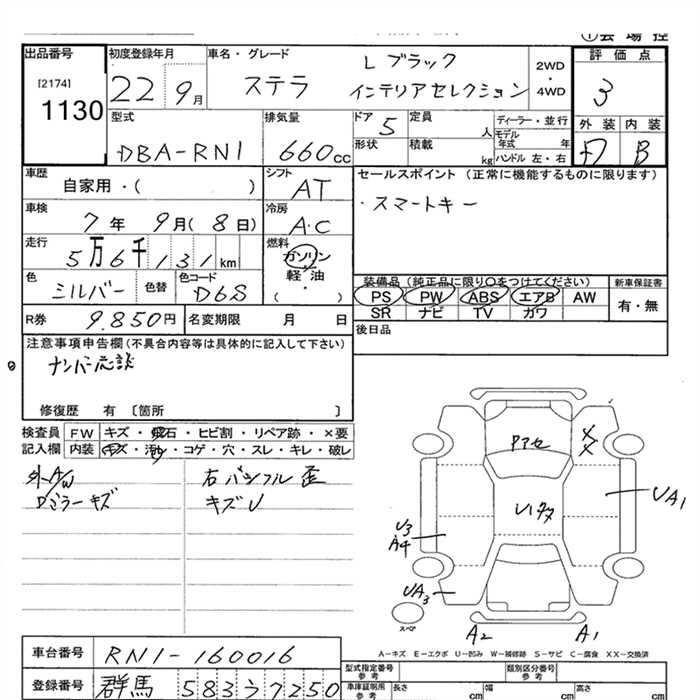 ①会場控
出品番号 [2174] 1130
初度登録年月 22 9月
車名・グレード ステラ L ブラック インテリアセレクション
2WD・4WD
評価点 3
外装 内装 B
型式 DBA-RN1
排気量 660cc
ドア 5 定員 人
形状 積載 kg
ディーラー・並行
モデル年式 年
ハンドル 左・右
車歴 自家用・( )
シフト AT
セールスポイント(正常に機能するものに限ります)
・スマートキー
車検 7年 9月(8日)
冷房 A・C
走行 5万6千131km
燃料 ガソリン 軽油 ( ・ )
色 シルバー 色替 色コード D6S
装備品(純正品に限り○をつけてください) 新車保証書
PS PW ABS エアB AW 有・無
SR ナビ TV カワ
R券 9.850円 名変期限 月 日
後日品
注意事項申告欄(不具合内容等は具体的に記入して下さい)
ナンバー応談
修復歴 有 〔箇所 〕
検査員 FW キズ・飛石・ヒビ割・リペア跡・×要
記入欄 内装 キズ・汚れ・コゲ・穴・スレ・キレ・破レ
外A/W 右 歪
Dミラーキズ キズU
Pアセ
UA1
U3
A4
UA3
スペア
A2 A1
A-キズ E-エクボ U-凹み W-補修跡 S-サビ C-腐食 XX-交換済
車台番号 RN1-160016
型式指定番号 参考 類別区分番号 参考
登録番号 群馬 583う7250
車庫証明用 参考 長さ cm 幅 cm 高さ cm